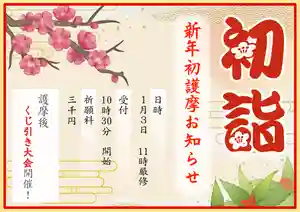 初詣
新年初護摩お知らせ
日時
1月3日 11時厳修
受付
10時30分 開始
祈願料
三千円
護摩後
くじ引き大会開催!